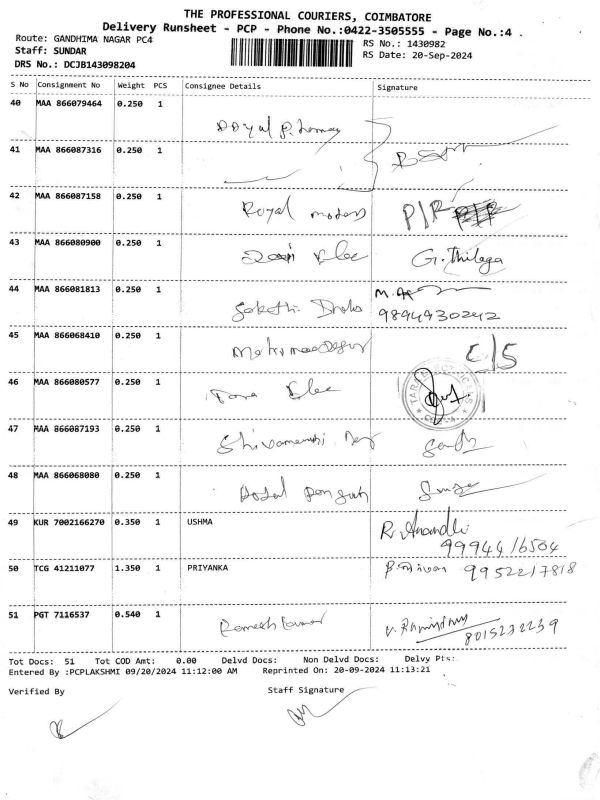 THE PROFESSIONAL COURIERS, COIMBATORE
Delivery Runsheet - PCP - Phone No.:0422-3505555 - Page No.:4
Route: GANDHIMA NAGAR PC4
RS No.: 1430982
Staff: SUNDAR
RS Date: 20-Sep-2024
DRS No.: DCJB143098204
S No Consignment No Weight PCS Consignee Details Signature
40 MAA 866079464 0.250 1
41 MAA 866087316 0.250 1
42 MAA 866087158 0.250 1
Royal P/R
43 MAA 866080900 0.250 1
G. Thilaga
44 MAA 866081813 0.250 1
9894930242
45 MAA 866068410 0.250 1
C/S
46 MAA 866080577 0.250 1
47 MAA 866087193 0.250 1
48 MAA 866068080 0.250 1
49 KUR 7002166270 0.350 1 USHMA
R. Anandhi
9994416504
50 TCG 41211077 1.350 1 PRIYANKA
9952217818
51 PGT 7116537 0.540 1
Ramesh Kumar
8015232239
Tot Docs: 51 Tot COD Amt: 0.00 Delvd Docs: Non Delvd Docs: Delvy Pts:
Entered By :PCPLAKSHMI 09/20/2024 11:12:00 AM Reprinted On: 20-09-2024 11:13:21
Verified By Staff Signature